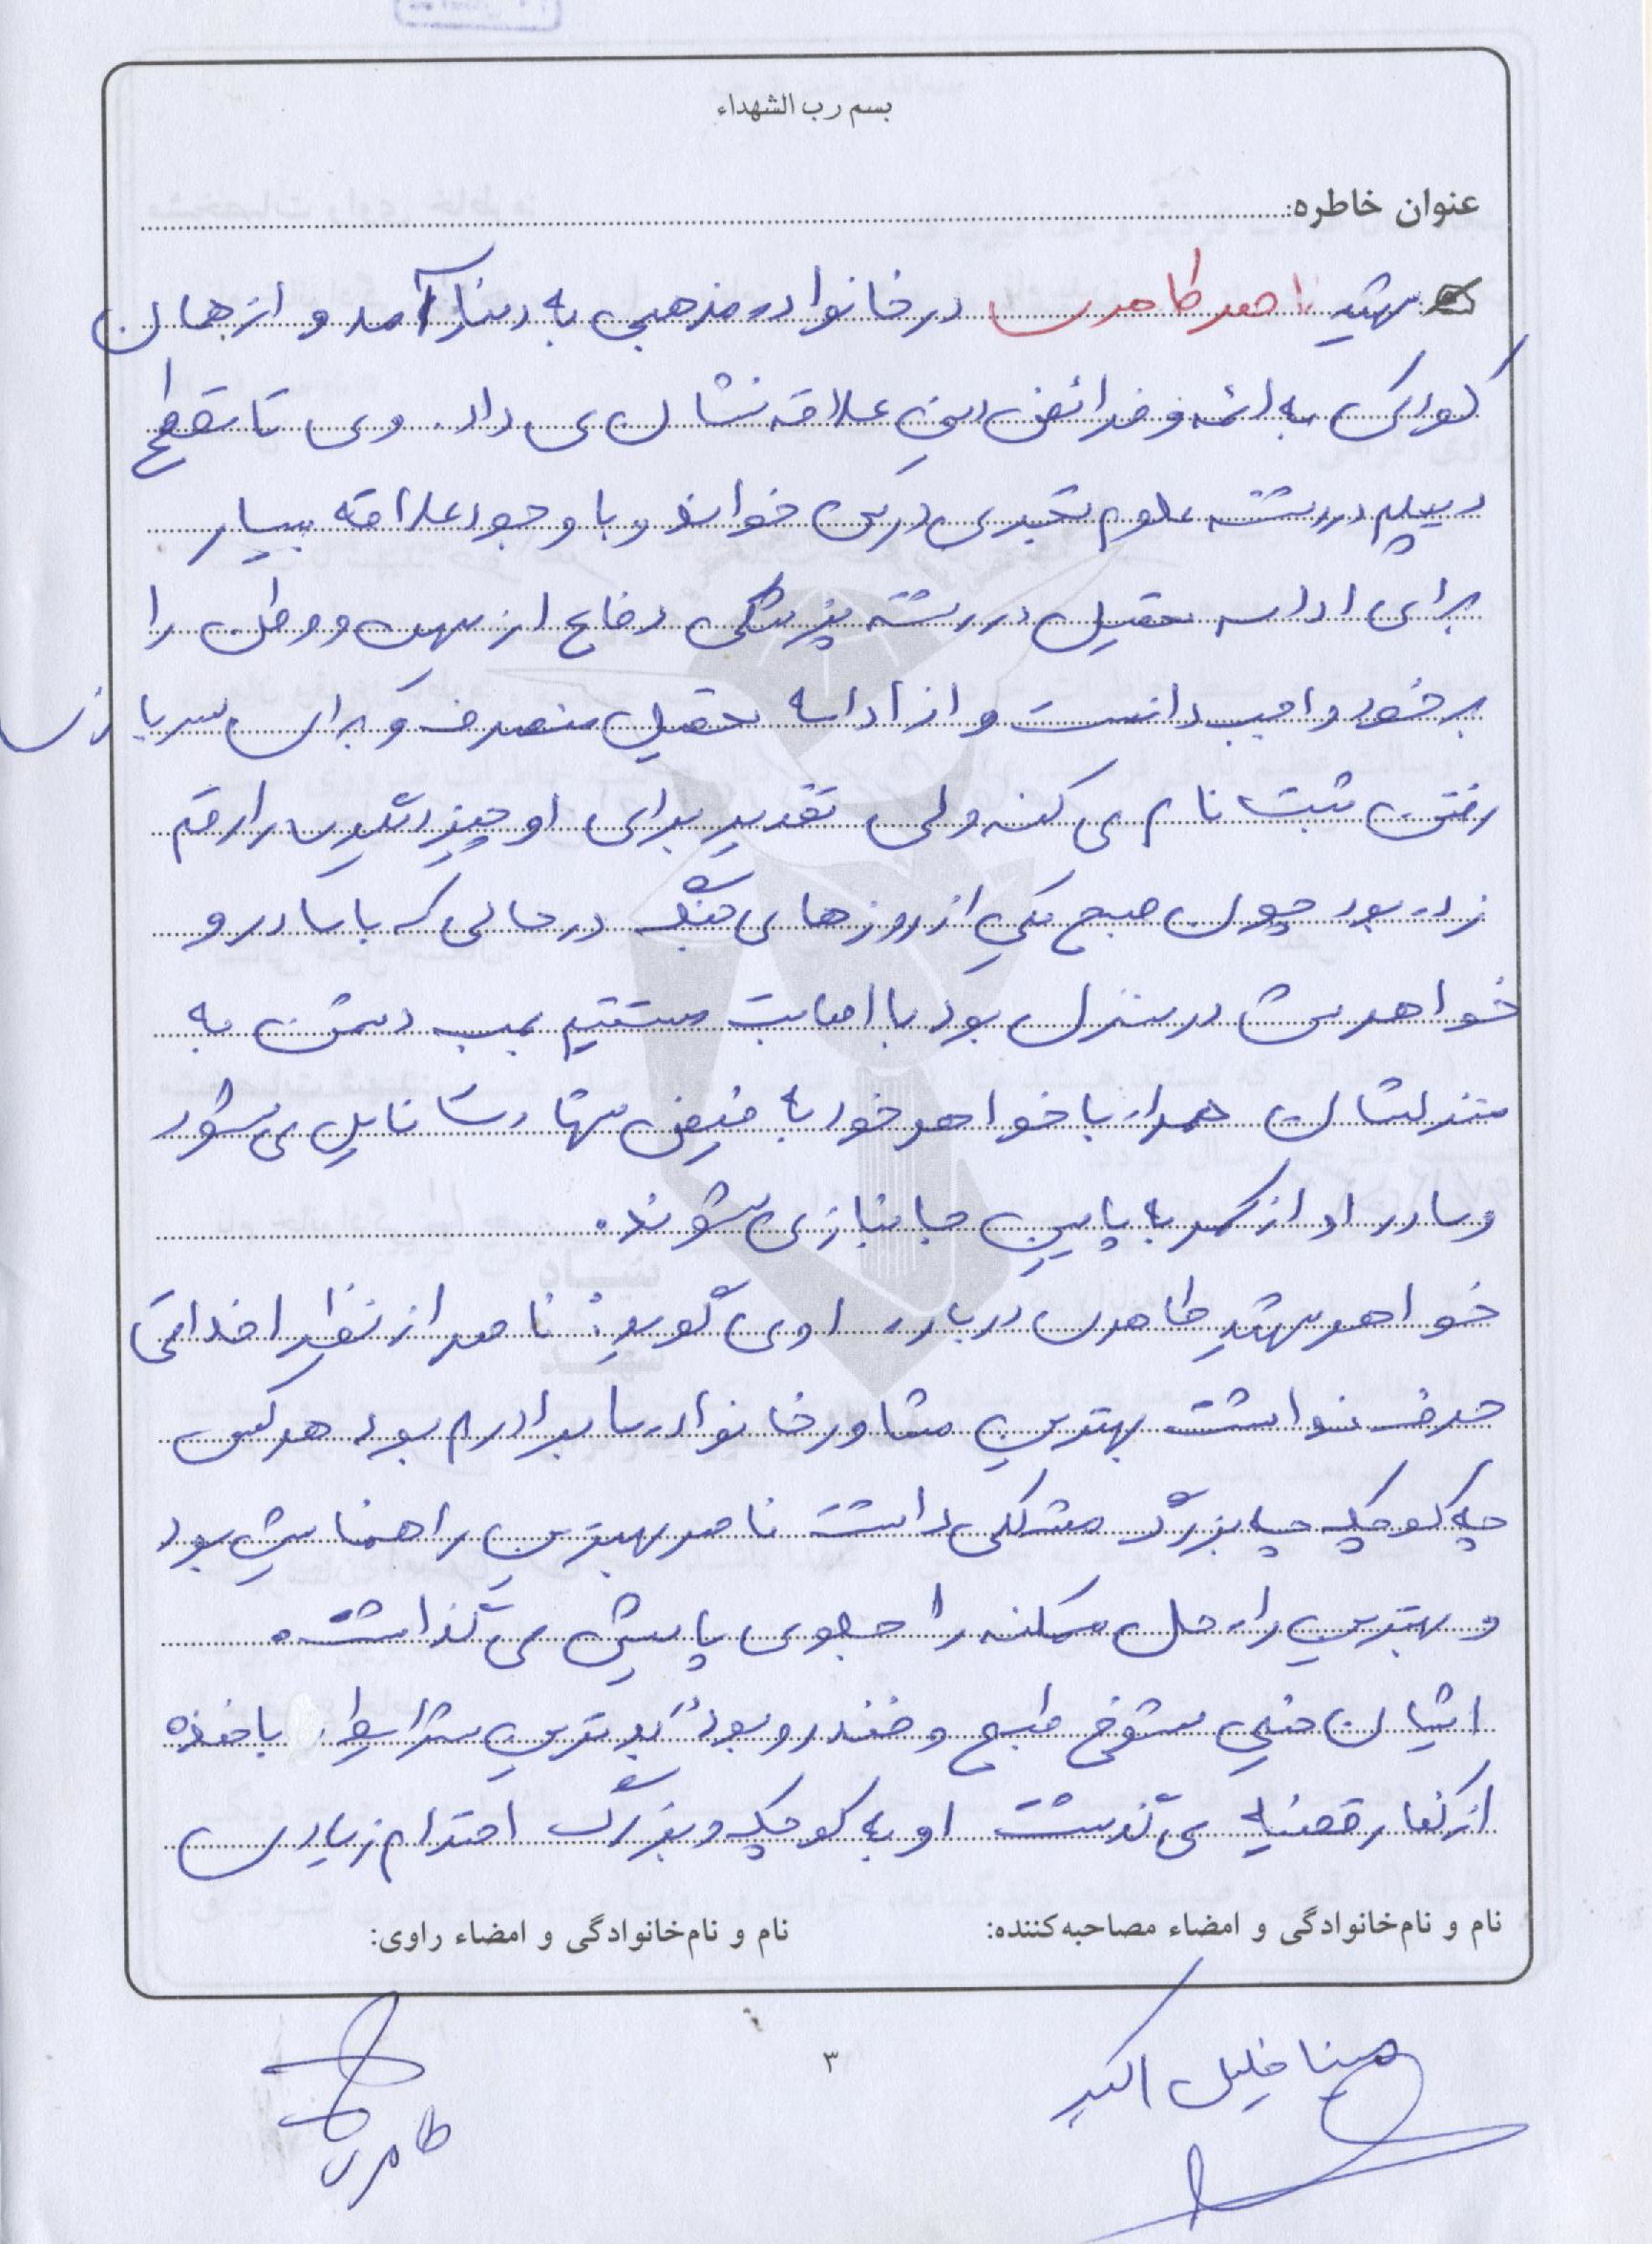 بسم رب الشهداء
عنوان خاطره:
شهید ناصر طاهری در خانواده مذهبی به دنیا آمد و از همان
کودکی به ائمه و فرائض دینی علاقه نشان می داد. وی تا مقطع
دیپلم در رشته علوم تجربی درس خواند و با وجود علاقه بسیار
برای ادامه تحصیل در رشته پزشکی دفاع از میهن و وطن را
بر خود واجب دانست و از ادامه تحصیل منصرف و برای سربازی
رفتن ثبت نام می کند ولی تقدیر برای او چیز دیگری را رقم
زده بود چون صبح یکی از روزهای جنگ در حالی که با مادر و
خواهرش در منزل بود با اصابت مستقیم بمب دشمن به
منزلشان همراه با خواهر خود به فیض شهادت نایل می شود
و مادر او از کمر به پایین جانباز می شوند.
خواهر شهید طاهری درباره او می گوید: ناصر از نظر اخلاقی
حرف نداشت بهترین مشاور خانواده ما برادرم بود هر کس
چه کوچک چه بزرگ مشکلی داشت ناصر بهترین راهنمایش بود
و بهترین راه حل ممکنه را جلوی پایش می گذاشت.
ایشان خیلی شوخ طبع و خنده رو بود بدترین شرایط را با خنده
از کنار قضیه می گذشت او به کوچک و بزرگ احترام زیادی
نام و نام‌خانوادگی و امضاء مصاحبه‌کننده:
نام و نام‌خانوادگی و امضاء راوی:
مینا خلیل اکبر
۳
طاهری
بنیاد
شهید